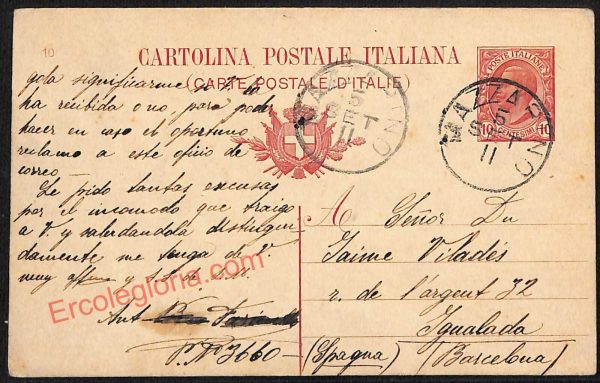 10
CARTOLINA POSTALE ITALIANA
(CARTE POSTALE D'ITALIE)
POSTE ITALIANE
10 CENTESIMI 10
MAZZARINO
5
SET
11
MAZZARINO
5
SET
11
gola significarme si la
ha recibida o no para poder
hacer en caso el oportuno
reclamo a este oficio de
correo.
Le pido tantas excusas
por el incomodo que traigo
a V. y saludandola distinguen
damente me tenga de V.
muy affmo y S.S.
Ant.
P.N 3660-
A Señor Dn
Jaime Viladés
r. de l'argent 32
Igualada
(Spagna) (Barcelona)
Ercolegloria.com